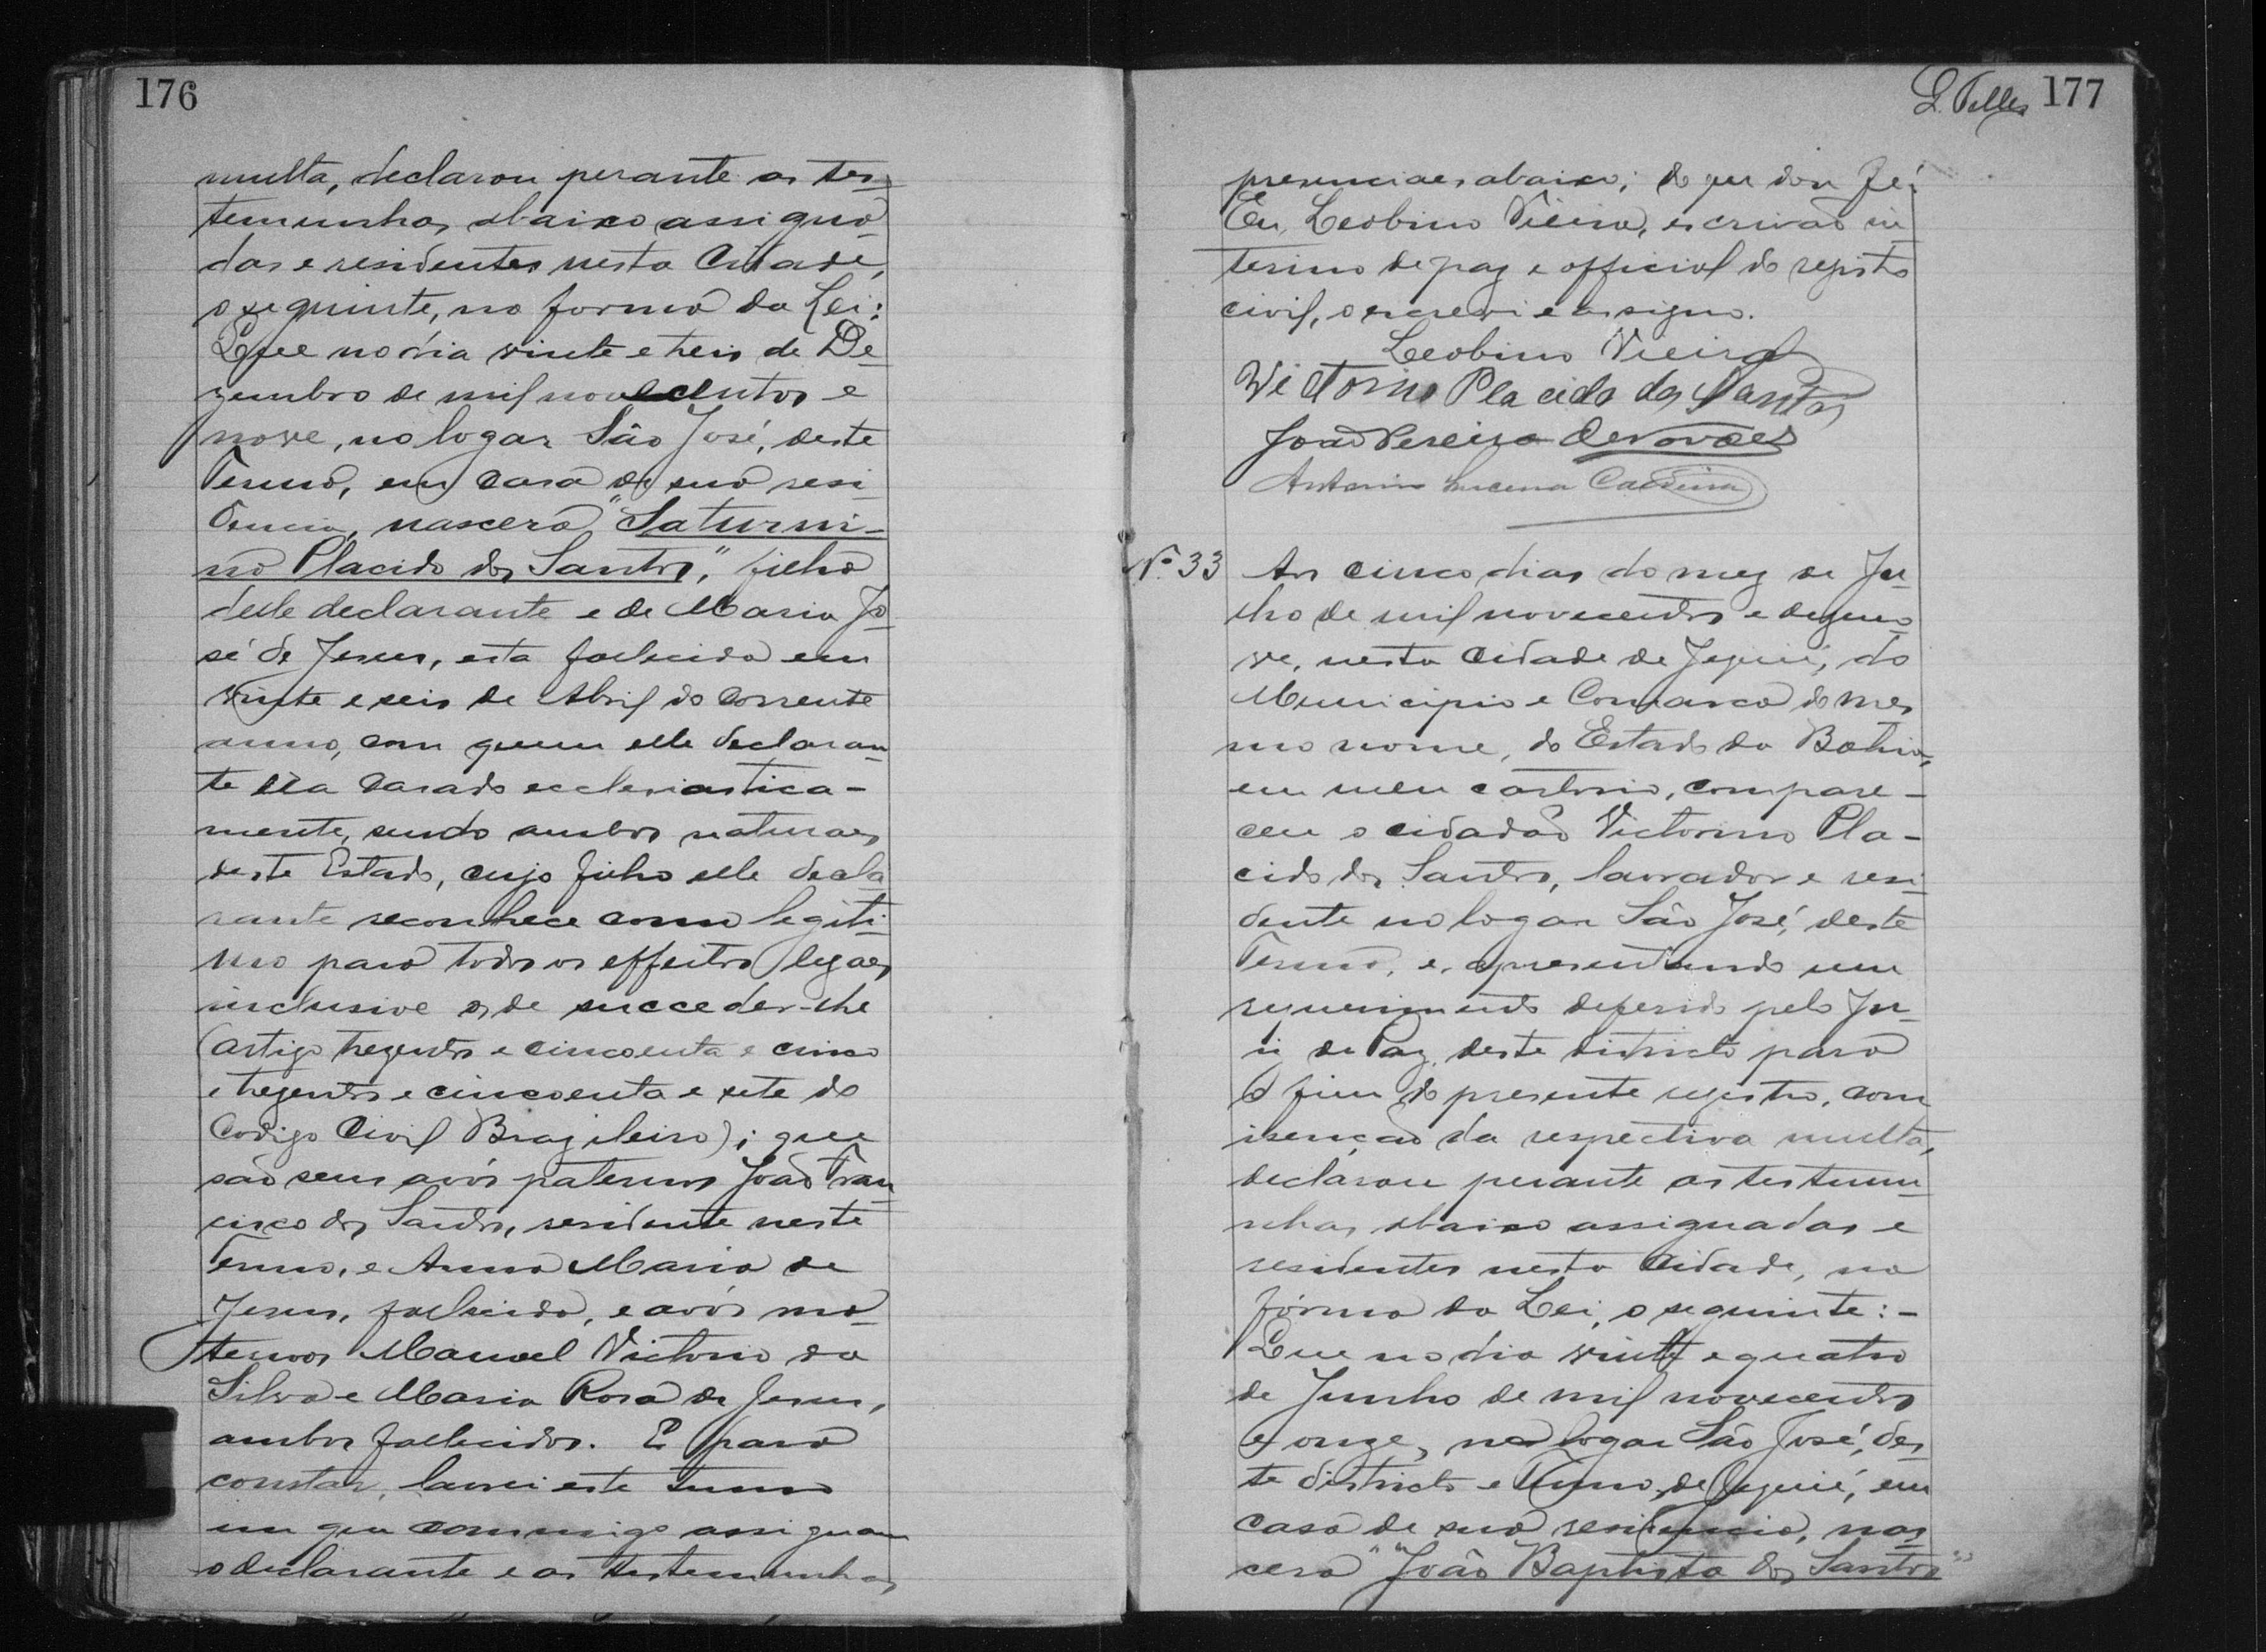 176
multa, declarou perante as tes-
temunhas abaixo assigna-
das e residentes nesta Cidade,
o seguinte, na forma da Lei:
Que no dia vinte e treis de De-
zembro de mil novecentos e
nove, no logar São José, deste
Termo, em casa de sua resi-
dencia, nascera "Saturni-
no Placido dos Santos," filho
delle declarante e de Maria Jo-
sé de Jesus, esta fallecida em
vinte e seis de Abril do corrente
anno, com quem elle declaran-
te era casado ecclesiastica-
mente, sendo ambos naturaes
deste Estado, cujo filho elle decla-
rante reconhece como legiti-
mo para todos os effeitos legaes,
inclusive o de succeder-lhe
(artigo trezentos e cincoenta e cinco
e trezentos e cincoenta e sete do
Codigo Civil Brazileiro); que
são seus avós paternos João Fran-
cisco dos Santos, residente neste
Termo, e Anna Maria de
Jesus, fallecida, e avós ma-
ternos Manoel Victorio da
Silva e Maria Rosa de Jesus,
ambos fallecidos. E para
constar, lavrei este termo
em que commigo assignam
o declarante e as testemunhas
L. Telles 177
presenciaes abaixo; do que dou fé.
Eu, Leobino Vieira, escrivão in-
terino de paz e official do registo
civil, o escrevi e assigno.
Leobino Vieira
Victorino Placido dos Santos
João Pereira de Novaes
Antonio Lucena
Nº 33 Aos cinco dias do mez de Ju-
lho de mil novecentos e dezeno-
ve, nesta Cidade de Jequié, do
Municipio e Comarca do mes-
mo nome, do Estado da Bahia,
em meu cartorio, compare-
ceu o cidadão Victorino Pla-
cido dos Santos, lavrador e resi-
dente no logar São José, deste
Termo, e, apresentando um
requerimento deferido pelo Ju-
iz de Paz deste districto para
o fim do presente registro, com
isenção da respectiva multa,
declarou perante as testemu-
nhas abaixo assignadas e
residentes nesta Cidade, na
fórma da Lei, o seguinte:-
Que no dia vinte e quatro
de Junho de mil novecentos
e onze, no logar São José, des-
te districto e Termo de Jequié, em
casa de sua residencia, nas-
cera "João Baptista dos Santos"